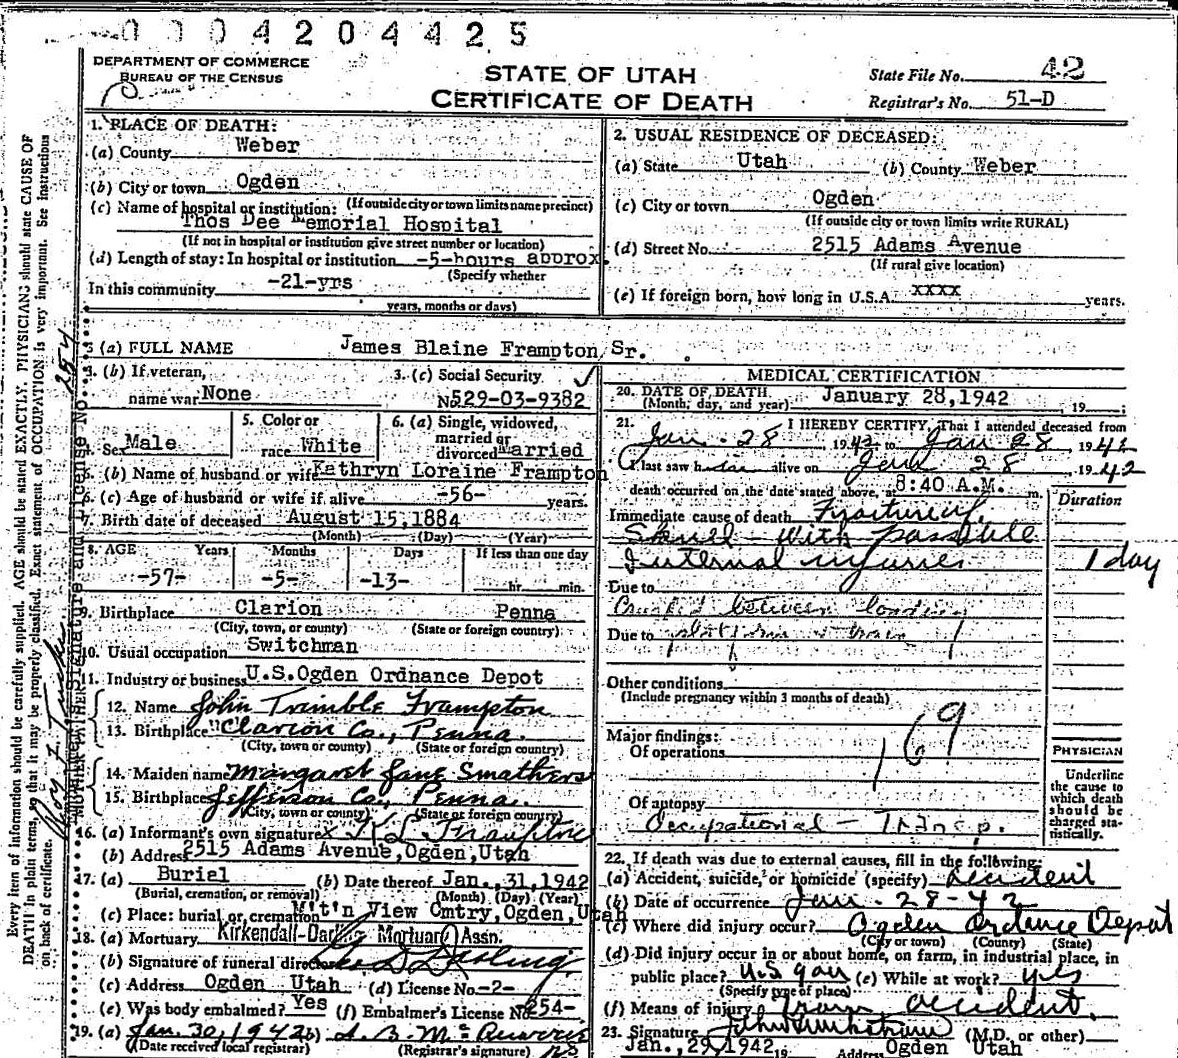 0004204425
DEPARTMENT OF COMMERCE
BUREAU OF THE CENSUS
STATE OF UTAH
CERTIFICATE OF DEATH
State File No. 42
Registrar's No. 51-D
1. PLACE OF DEATH:
(a) County Weber
(b) City or town Ogden
(If outside city or town limits name precinct)
(c) Name of hospital or institution:
Thos Dee Memorial Hospital
(If not in hospital or institution give street number or location)
(d) Length of stay: In hospital or institution -5-hours approx.
(Specify whether
In this community -21-yrs
years, months or days)
2. USUAL RESIDENCE OF DECEASED:
(a) State Utah (b) County Weber
(c) City or town Ogden
(If outside city or town limits write RURAL)
(d) Street No. 2515 Adams Avenue
(If rural give location)
(e) If foreign born, how long in U.S.A. xxxx years.
3 (a) FULL NAME James Blaine Frampton Sr.
3. (b) If veteran,
name war None
3. (c) Social Security
No 529-03-9382
4. Sex Male
5. Color or
race White
6. (a) Single, widowed,
married or
divorced Married
6. (b) Name of husband or wife Kathryn Loraine Frampton
6. (c) Age of husband or wife if alive -56- years.
7. Birth date of deceased August 15,1884
(Month) (Day) (Year)
8. AGE Years Months Days If less than one day
-57- -5- -13- hr. min.
9. Birthplace Clarion Penna
(City, town, or county) (State or foreign country)
10. Usual occupation Switchman
11. Industry or business U.S.Ogden Ordnance Depot
12. Name John Trimble Frampton
13. Birthplace Clarion Co., Penna.
(City, town or county) (State or foreign country)
14. Maiden name Margaret Jane Smathers
15. Birthplace Jefferson Co., Penna.
(City, town or county) (State or foreign country)
16. (a) Informant's own signature x Frampton
(b) Address 2515 Adams Avenue,Ogden,Utah
17. (a) Buriel (b) Date thereof Jan.,31,1942
(Burial, cremation, or removal) (Month) (Day) (Year)
(c) Place: burial or cremation Mt'n View Cmtry,Ogden,Utah
18. (a) Mortuary Kirkendall-Darling Mortuary Assn.
(b) Signature of funeral director Darling
(c) Address Ogden Utah (d) License No. -2-
(e) Was body embalmed? Yes (f) Embalmer's License No 254-
19. (a) Jan. 30, 1942 (b)
(Date received local registrar) (Registrar's signature)
MEDICAL CERTIFICATION
20. DATE OF DEATH January 28,1942 19
(Month, day, and year)
21. I HEREBY CERTIFY, That I attended deceased from
Jan. 28 1942 to Jan 28 1942
I last saw him alive on Jan 28 1942
death occurred on the date stated above, at 8:40 A.M. m.
Duration
Immediate cause of death Fracture of
Skull - with possible
Internal injuries 1 day
Due to
Crushed between loading
Due to platform & train
Other conditions
(Include pregnancy within 3 months of death)
Major findings:
Of operations
169
Of autopsy
Occupational - Transp.
PHYSICIAN
Underline
the cause to
which death
should be
charged sta-
tistically.
22. If death was due to external causes, fill in the following:
(a) Accident, suicide, or homicide (specify) accident
(b) Date of occurrence Jan - 28 - 42
(c) Where did injury occur? Ogden Ordance Depot
(City or town) (County) (State)
(d) Did injury occur in or about home, on farm, in industrial place, in
public place? U.S gov (e) While at work? yes
(Specify type of place)
(f) Means of injury train accident.
23. Signature (M.D. or other)
Jan.,29,1942 19 Address Ogden Utah
Every item of information should be carefully supplied. AGE should be stated EXACTLY. PHYSICIANS should state CAUSE OF
DEATH in plain terms, so that it may be properly classified. Exact statement of OCCUPATION is very important. See instructions
on back of certificate.
signature and License No. 254
MOTHER FATHER